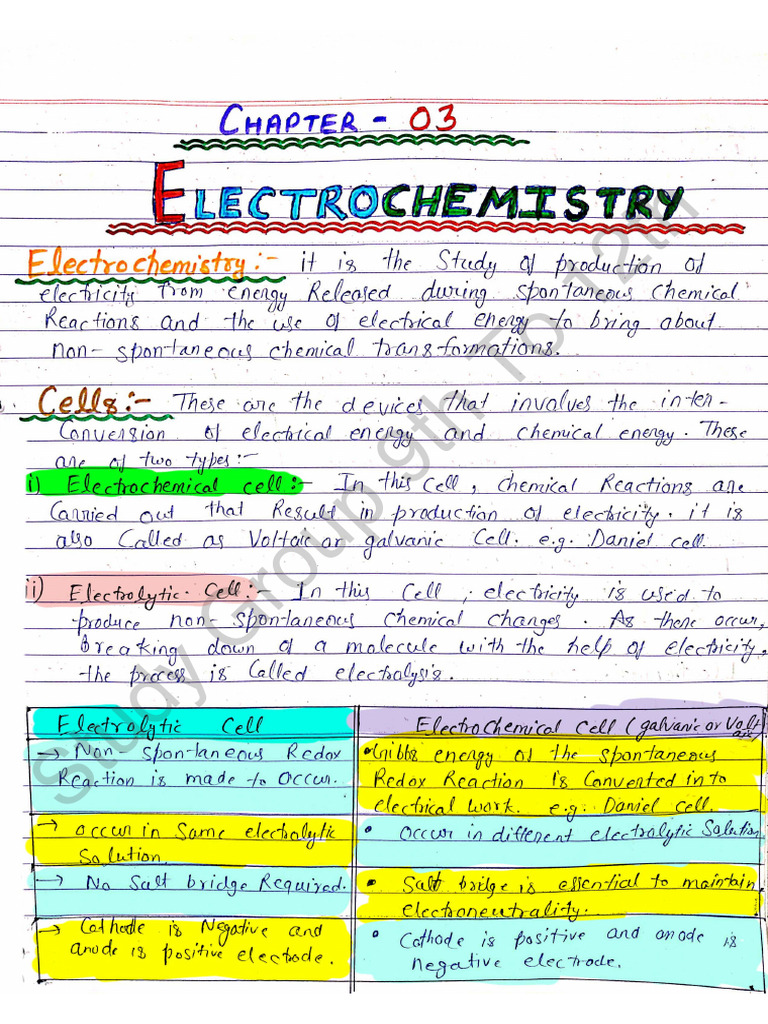 CHAPTER - 03
ELECTROCHEMISTRY
Electrochemistry:- it is the Study of production of
electricity from energy Released during spontaneous Chemical
Reactions and the use of electrical energy to bring about
non-spontaneous chemical transformations.
Cells:- These are the devices that involves the inter-
Conversion of electrical energy and chemical energy. These
are of two types:-
i) Electrochemical cell:- In this cell, chemical Reactions are
Carried out that Result in production of electricity. it is
also Called as Voltaic or galvanic Cell. e.g. Daniel cell.
ii) Electrolytic Cell:- In this Cell, electricity is used to
produce non-spontaneous Chemical changes. As there occur,
Breaking down of a molecule with the help of electricity,
the process is Called electrolysis.
Electrolytic Cell
→ Non spontaneous Redox
Reaction is made to Occur.
→ occur in Same electrolytic
Solution.
→ No Salt bridge Required.
→ Cathode is Negative and
anode is positive electrode.
ElectroChemical Cell (galvanic or Voltaic
• Gibbs energy of the spontaneous
Redox Reaction Is Converted in to
electrical work. e.g. Daniel cell.
• Occur in different electrolytic Solution
• Salt bridge is essential to maintain
electroneutrality.
• Cathode is positive and anode is
negative electrode.
Study Group 9th To 12th